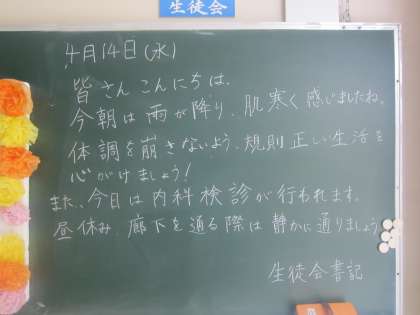 生徒会
4月14日(水)
皆さんこんにちは。
今朝は雨が降り、肌寒く感じましたね。
体調を崩さないよう、規則正しい生活を
心がけましょう!
また、今日は内科検診が行われます。
昼休み、廊下を通る際は静かに通りましょう
生徒会書記